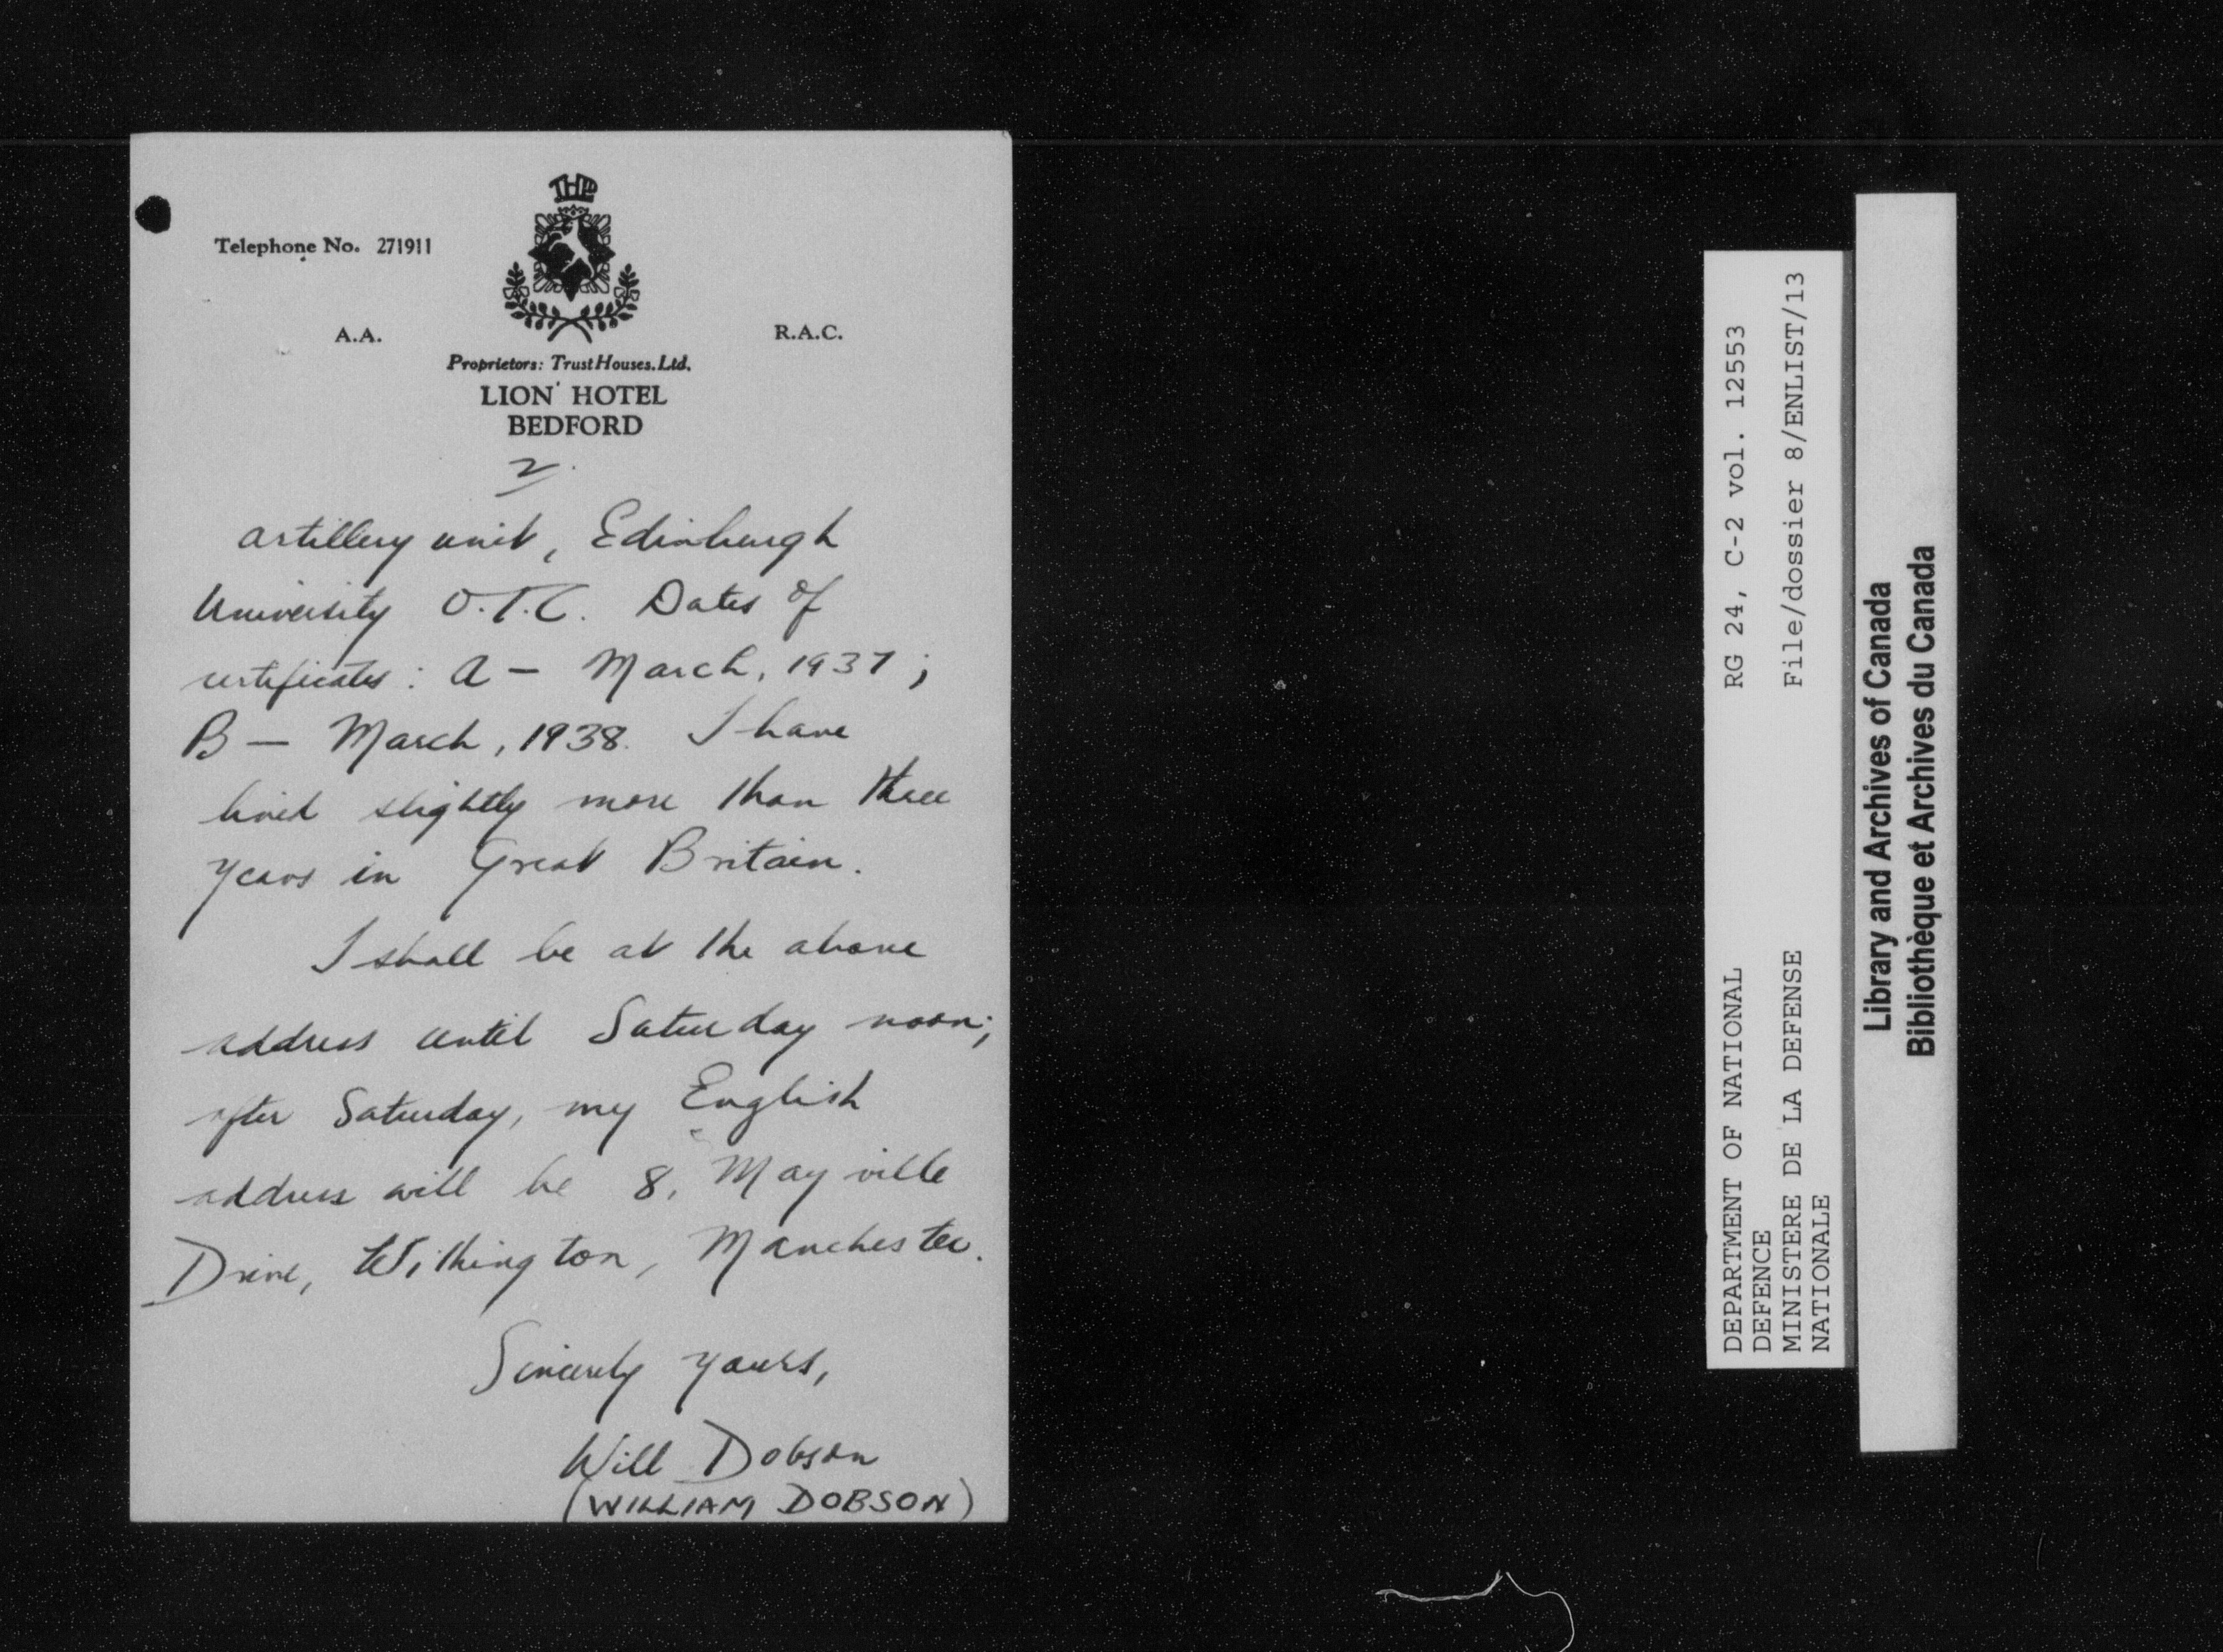 THL
Telephone No. 271911
A.A.
R.A.C.
Proprietors: Trust Houses, Ltd.
LION HOTEL
BEDFORD
2.
artillery unit, Edinburgh
University O.T.C. Dates of
certificates: A — March, 1937;
B — March, 1938. I have
lived slightly more than three
years in Great Britain.
I shall be at the above
address until Saturday noon;
after Saturday, my English
address will be 8, Mayville
Drive, Withington, Manchester.
Sincerely yours,
Will Dobson
(WILLIAM DOBSON)
RG 24, C-2 vol. 12553
File/dossier 8/ENLIST/13
DEPARTMENT OF NATIONAL
DEFENCE
MINISTERE DE LA DEFENSE
NATIONALE
Library and Archives of Canada
Bibliothèque et Archives du Canada